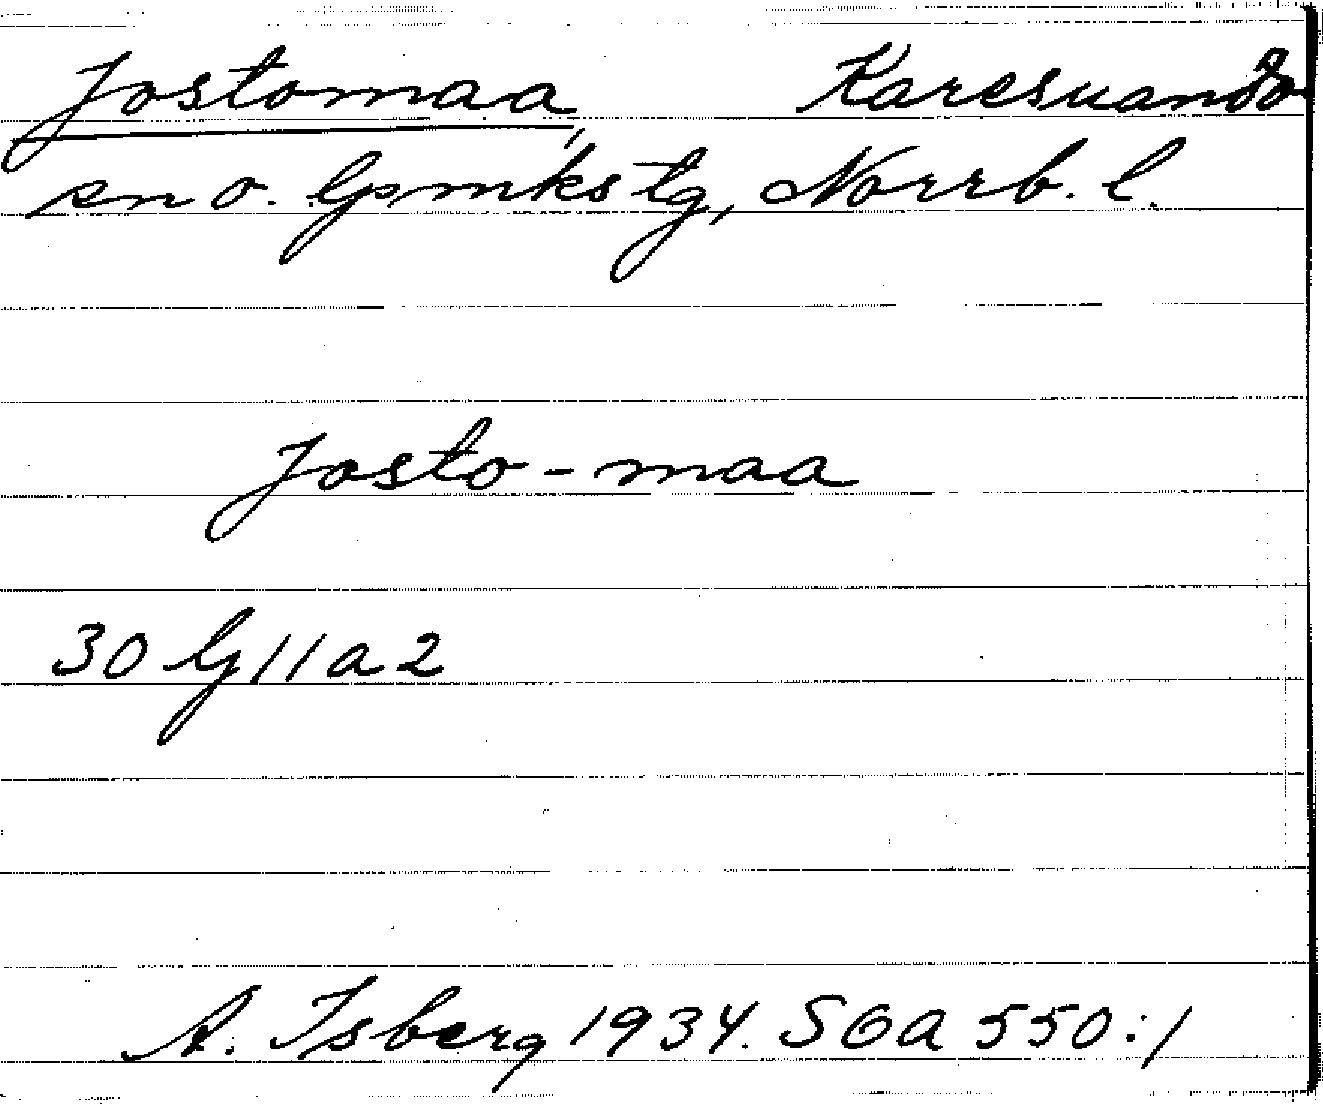 Jostomaa, Karesuando
sn o. lpmkstg, Norrb. l.
Josto-maa
30 G 11 a 2
A. Isberg 1934. SOA 550:1